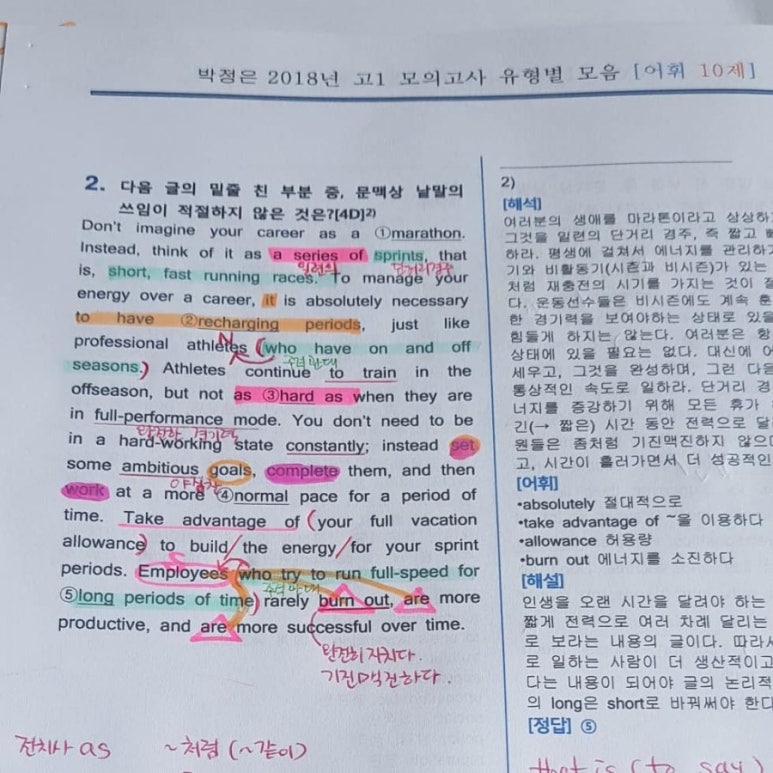 박정은 2018년 고1 모의고사 유형별 모음 [어휘 10제]
2. 다음 글의 밑줄 친 부분 중, 문맥상 낱말의
쓰임이 적절하지 않은 것은?[4D]2)
Don't imagine your career as a ①marathon.
Instead, think of it as a series of sprints, that
일련의 단거리경주
is, short, fast running races. To manage your
energy over a career, it is absolutely necessary
to have ②recharging periods, just like
professional athletes (who have on and off
주격관대
seasons.) Athletes continue to train in the
offseason, but not as ③hard as when they are
in full-performance mode. You don't need to be
완전한 경기력
in a hard-working state constantly; instead set
some ambitious goals, complete them, and then
야심찬
work at a more ④normal pace for a period of
time. Take advantage of (your full vacation
allowance) to build/the energy/for your sprint
periods. Employees (who try to run full-speed for
주격관대
⑤long periods of time) rarely burn out, are more
productive, and are more successful over time.
완전히 지치다.
기진맥진하다.
전치사 as ~처럼 (~같이)
2)
[해석]
여러분의 생애를 마라톤이라고 상상하
그것을 일련의 단거리 경주, 즉 짧고
하라. 평생에 걸쳐서 에너지를 관리하
기와 비활동기(시즌과 비시즌)가 있는
처럼 재충전의 시기를 가지는 것이
다. 운동선수들은 비시즌에도 계속 훈
한 경기력을 보여야하는 상태로 있을
힘들게 하지는 않는다. 여러분은 항
상태에 있을 필요는 없다. 대신에
세우고, 그것을 완성하며, 그런 다음
통상적인 속도로 일하라. 단거리 경
너지를 증강하기 위해 모든 휴가
긴(→ 짧은) 시간 동안 전력으로 달
원들은 좀처럼 기진맥진하지 않으
고, 시간이 흘러가면서 더 성공적인
[어휘]
•absolutely 절대적으로
•take advantage of ~을 이용하다
•allowance 허용량
•burn out 에너지를 소진하다
[해설]
인생을 오랜 시간을 달려야 하는
짧게 전력으로 여러 차례 달리는
로 보라는 내용의 글이다. 따라서
로 일하는 사람이 더 생산적이고
다는 내용이 되어야 글의 논리적
의 long은 short로 바꿔써야 한다
[정답] ⑤
that is (to say)